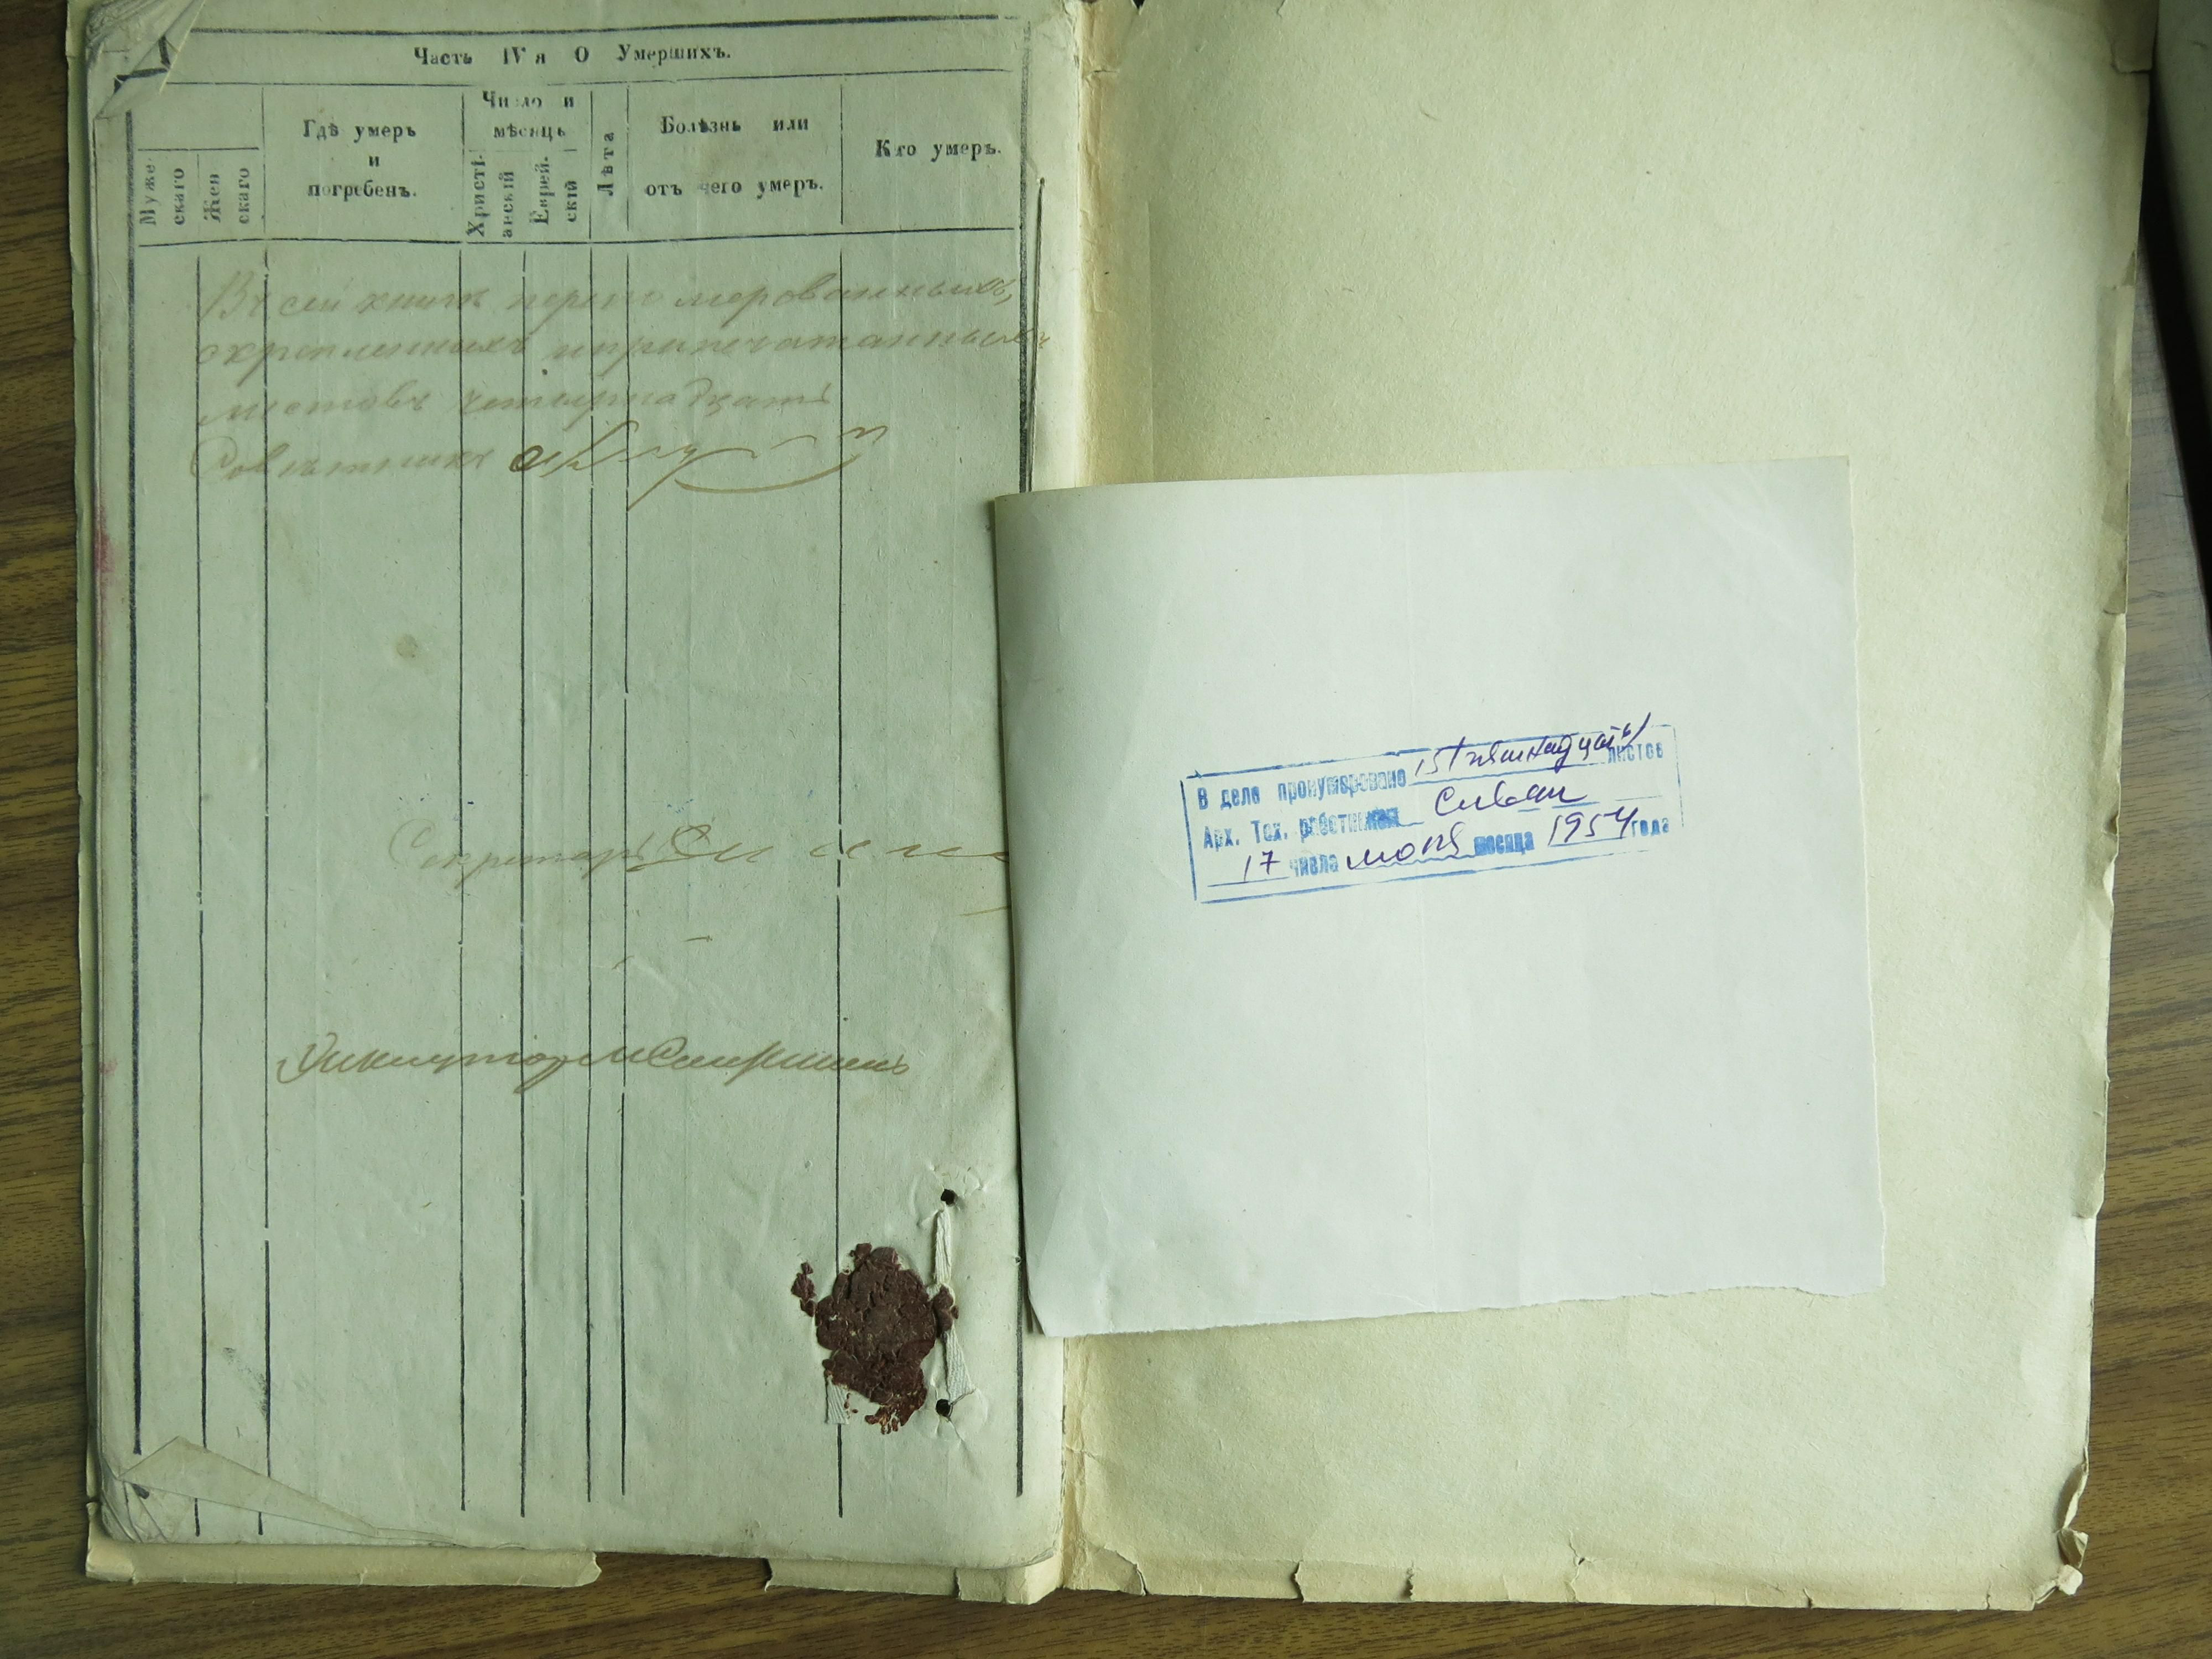 Часть IV я О Умершихъ.
Муже
скаго
Жен
скаго
Где умеръ
и
погребенъ.
Число и
мѣсяцъ
Христі-
анскій
Еврей-
скій
Лѣта
Болѣзнь или
отъ чего умеръ.
Кто умеръ.
Въ сей книгѣ перенумерованныхъ,
скрепленныхъ и припечатанныхъ
листовъ четырнадцать
Советникъ
Секретарь
В деле пронумеровано 15 (пятнадцать) листов
Арх. Тех. работник
17 числа месяца 1954 года